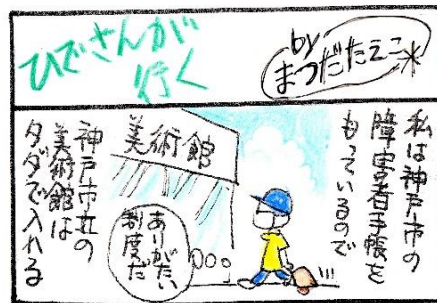 ひでさんが
行く
by
まつだたえこ
私は神戸市の
障害者手帳を
もっているので
美術館
ありがたい
制度だ
神戸市立の
美術館は
タダで入れる